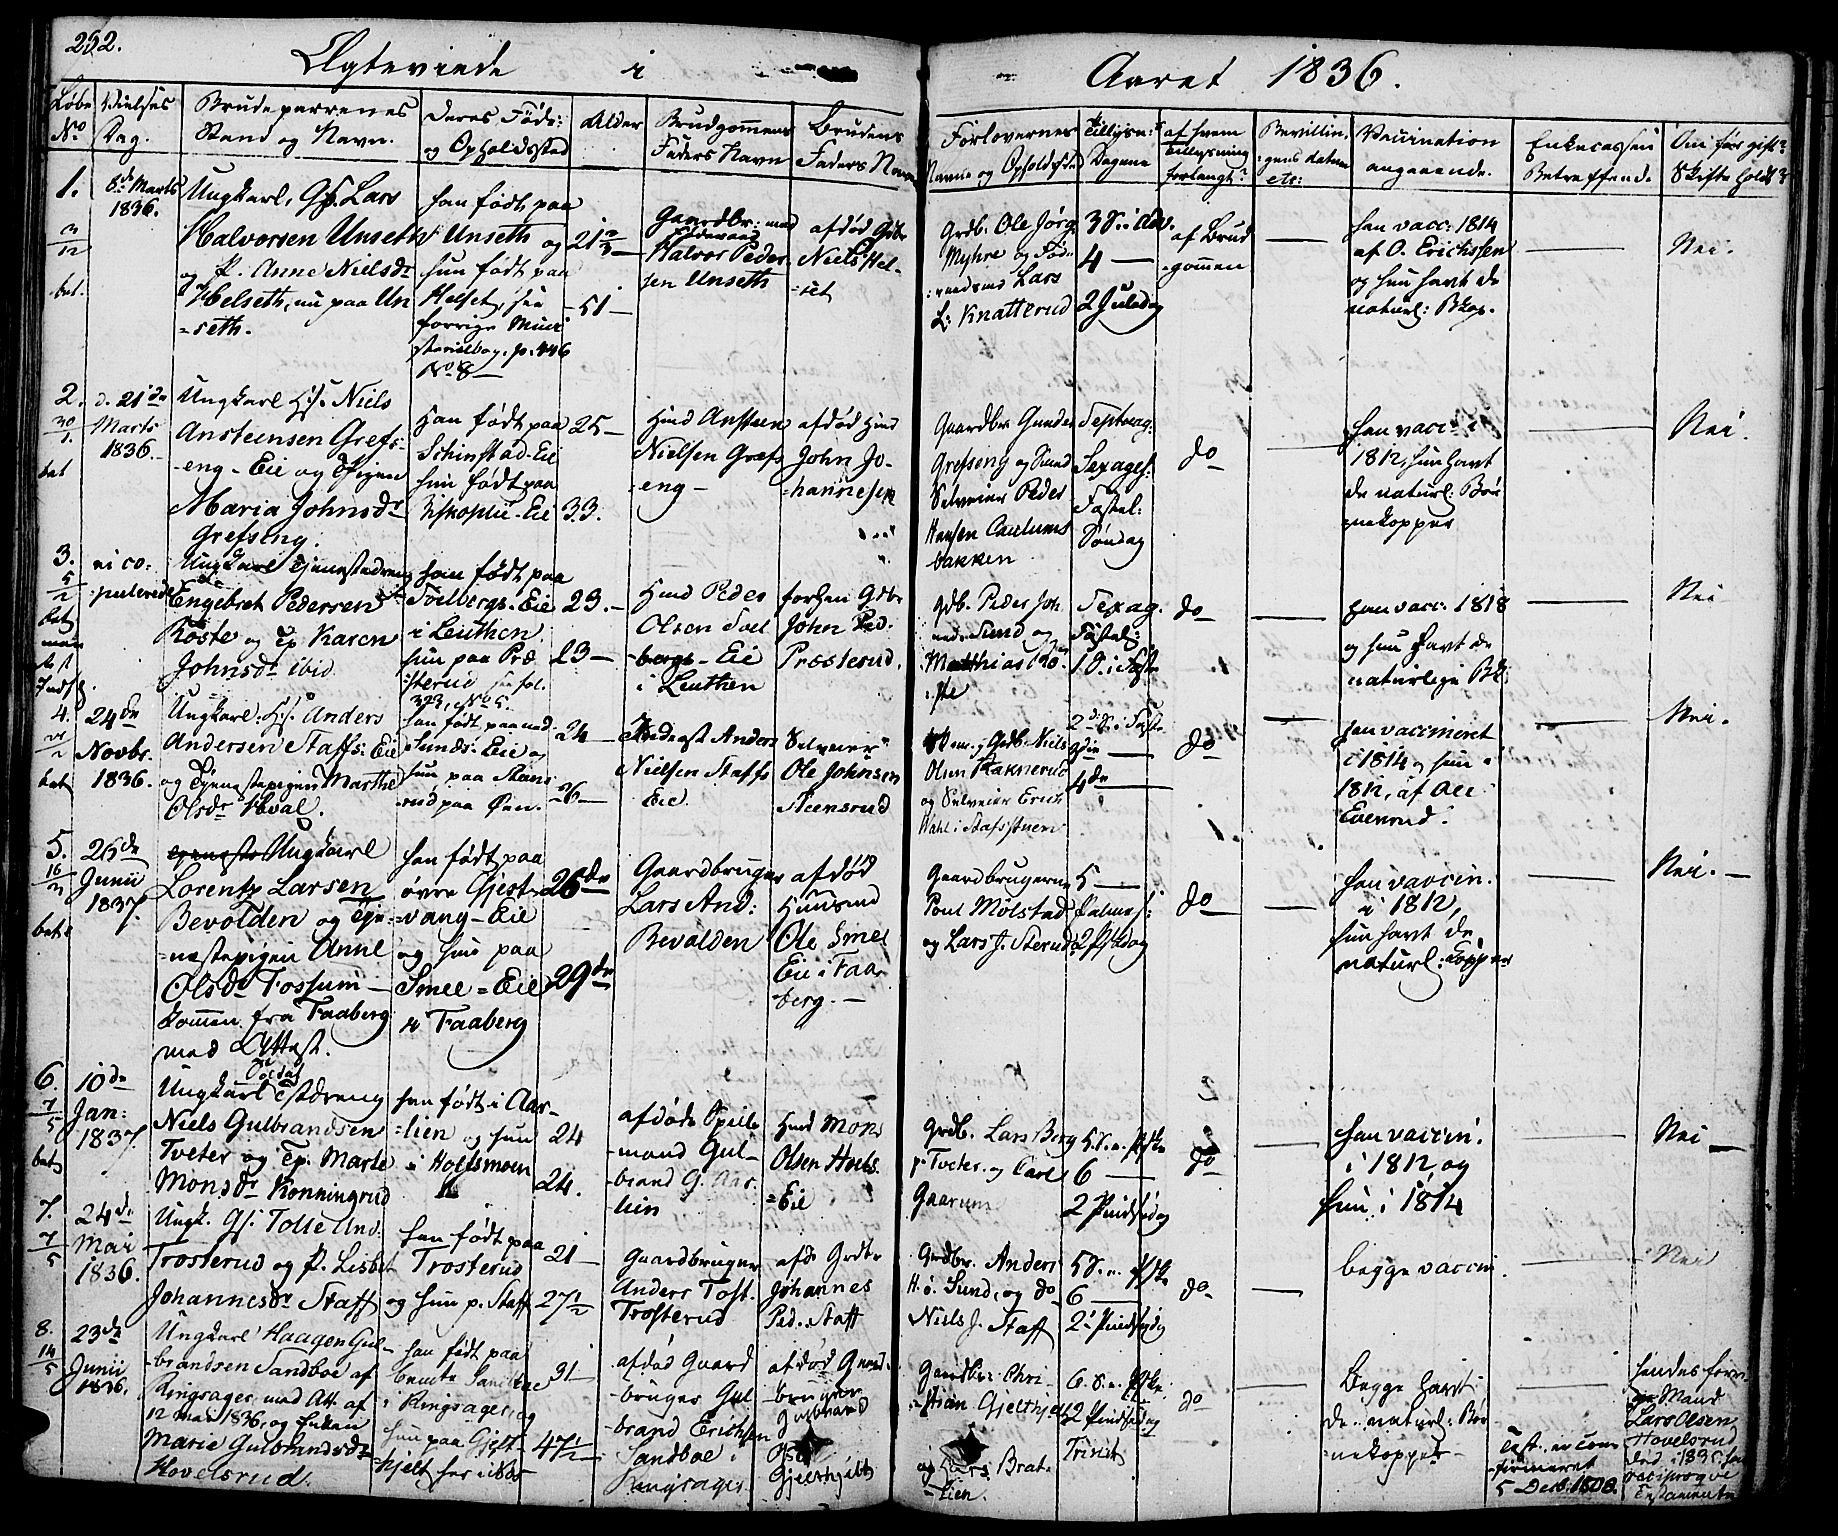 252.
Ægteviede i Aaret 1836.
Løbe No
Vielses Dag.
Brudeparrenes Stand og Navn.
Deres Føde- og Opholdssted
Alder
Brudgommens Faders Navn
Brudens Faders Navn
Forlovernes Navne og Opholdsste
Tillysn: Dagene
af hvem Tillysning forlangt?
Bevillingens datum etc:
Vaccination angaaende.
Enkecassen Betreffend.
Om før gift? Skifte holdt?
1.
8de Marts
1836.
Ungkarl, Gs. Lars
Halvorsen Unseth
og P. Anne Nielsdr
Helseth, nu paa Un
=seth.
han født paa
Unseth og
hun født paa
Helset, see
forrige Mini
sterialbog. p. 446
No 8
21
51
Gaardbr: med
Halvor Peder
sen Unseth
afdød Gdbr
Niels Hel-
=set
Grdb. Ole Jørg
Myhre og Fød-
Lars
L: Knatterud
3 S. i Adv.
4 —
2 Juledag
af Brud
-gommen
han vacc: 1814
af O. Erichssen
og hun havt de
naturl: Bkop.
Nei.
2.
d. 21de
Marts
1836.
30
1.
bet
Ungkarl Hs. Niels
Ansteensen Grefs-
-eng-Eie og Pigen
Maria Johnsdr
Grefseng.
Han født paa
Schinstad-Eie
hun født paa
Biskoplie-Eie
25
33.
Hmd Ansteen
Nielsen Grefs
-eng-
afdød Hmd
John Jo-
=hannesen
Gaardbr Gunder
Grefseng og Smed
Selveier Peder
Hansen Caulums
bakken
Septuag.
Sexages.
Fastel:
Søndag
do
han vacc: i
1812, hun havt
de naturl: Bør
nekopper
Nei.
3.
5
2
bet
ei co-
pulerede
Ungkarl Tjenestedreng
Engebret Pedersen
Røste og Tp. Karen
Johnsdr ibid
han født paa
Toelbergs-Eie
i Leuthen
hun paa Præ
sterud see fol.
323, No 5.
23.
23
Hmd Peder
Olsen Toel
bergs-Eie
i Leuthen
forhen Gdbr
John Ped-
Præsterud.
Gdb. Peder Joh
Sund og
Matthias Rø
ste
Sexag.
Fastel:
1 S. i Faste
do
han vacc: 1818
og hun havt de
naturlige BK
Nei
4.
24de
Novbr.
1836.
bet
Ungkarl. Hs. Anders
Andersen Staffs: Eie
og Tjenestepigen Marthe
Olsdr Hval.
han født paa ned
Sunds-Eie og
hun paa Stens
rud paa Øen.
24
26
Anders
Nielsen Staffs
Eie.
Selveier
Ole Johnsen
Steensrud
Gdb. Niels
Olsen Kaknerud
og Selveier Erich
Wahl i Stafsstuen
2d S. i Faste
3die —
4de —
do
han vaccineret
i 1814 og hun i
1812, af Ole
Evenrud.
Nei.
5.
16
3
bet
26de
Junii
1837.
Ungkarl
Lorentz Larsen
Bevolden og Tje-
=nestepigen Anne
Olsdr Fossum-
kommen fra Faaberg
med Attest.
han født paa
øvre Gjest-
=vang-Eie
og hun paa
Smee=Eie
i Faaberg
26de
29de
Gaardbruger
Lars And:
Bevolden
afdød
Huusmd
Ole Smee
Eie i Faa-
berg.—
Gaardbrugerne
Poul Molstad
og Lars J. Sterud
5 —
Palmes:
2 Pskdag
do
han vaccin.
i 1812,
hun havt de
naturl: Kopper
Nei.—
6.
7
5
bet
10de
Jan:
1837.
Soldat
Ungkarl Tstdreng
Niels Gulbrandsen
Tveter og Tp. Marte
Monsdr Konningrud
han født i Aas-
=lien og hun
i Holsmoen
24
24.
afdøde Spille
-mand Gul-
brand G. Aas
lien
Hmd Mons
Olsen Hoels
=Eie
Grdb. Lars Berg
p. Tveter. og Carl
Gaarum
5 S. e. Pske
6 —
2 Pindsedag
do
han vaccin.
i 1812 og
hun i 1814
Nei —
7.
7
5
24de
Mai
1836.
Ungk. Gs. Tolle And.
Trosterud og P. Lisbet
Johannesdr Staff
han født paa
Trosterud
og hun p. Staff
21
27½
Gaardbruger
Anders Tost.
Trosterud
afd. Grdbr
Johannes
Ped. Staff
Grdbr. Anders
H. ø. Sund, og do
Niels J. Staff
5 S. e. Pske
6 —
2 Pindsedag
do.
begge vaccin.
Nei
8.
14
5
23de
Junii
1836.
Ungkarl Haagen Gul-
-brandsen Sandboe af
Ringsager med Att. af
12 mai 1836, og Enken
Marie Gulbrandsdr
Hovelsrud.
han født paa
Sandboe
i Ringsager, og
hun paa Gjelt-
hjelt her
31
47½
afdød Gaard
-bruger Gul
brand Erichsen
Sandboe i
Ringsager
afdød Gaard-
bruger
Gulbrand
Gjelthjelt
Gaardbr: Chri-
stian Gjelthjelt
og Lars Brat-
-lien.
6. S. e. Pske
2 Pindsedag
Trinit
do
Begge havt
de naturl: Bør
=nekopper-
5 Decb. 1808.
hendes forri
Mand
Lars Olsen
Hovelsrud
død i 1835 har
reciproque
Testamente